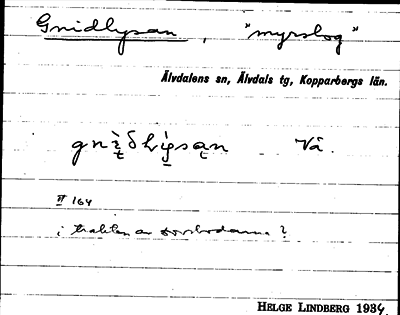 Gnidlysan, "myrslog"
Älvdalens sn, Älvdals tg, Kopparbergs län.
Vå.
VI 164
i trakten av ?
HELGE LINDBERG 1934.